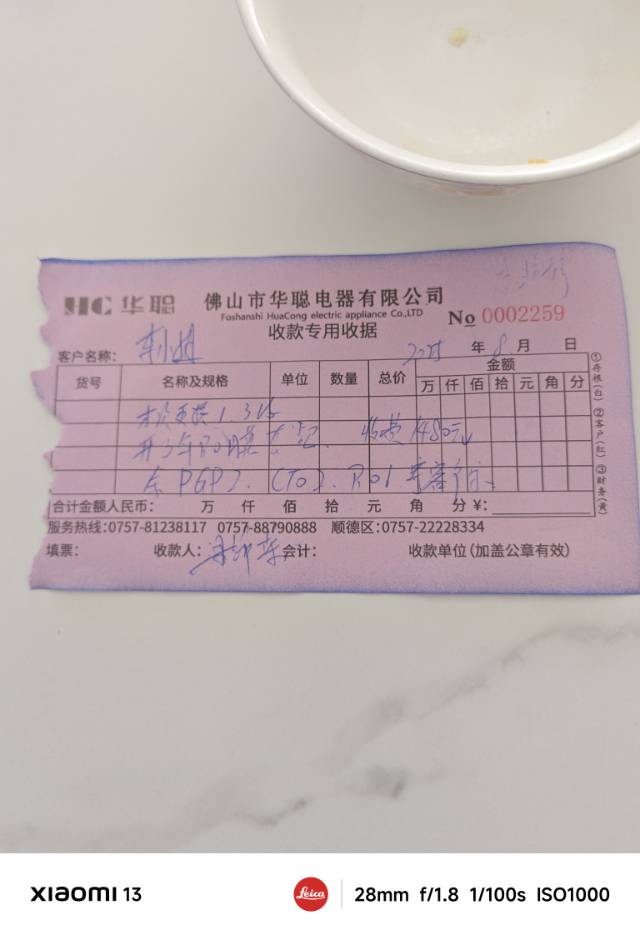 HC 华聪 佛山市华聪电器有限公司
Foshanshi HuaCong electric appliance Co.,LTD
No 0002259
收款专用收据
客户名称： 年 8 月 日
货号 名称及规格 单位 数量 总价 金额
万 仟 佰 拾 元 角 分
①存根(白) ②客户(红) ③财务(黄)
收费1480元
余 PGP2. CTO2. RO1
合计金额人民币： 万 仟 佰 拾 元 角 分 ¥：
服务热线：0757-81238117 0757-88790888 顺德区：0757-22228334
填票： 收款人： 会计： 收款单位(加盖公章有效)
XIAOMI 13
Leica
28mm f/1.8 1/100s ISO1000